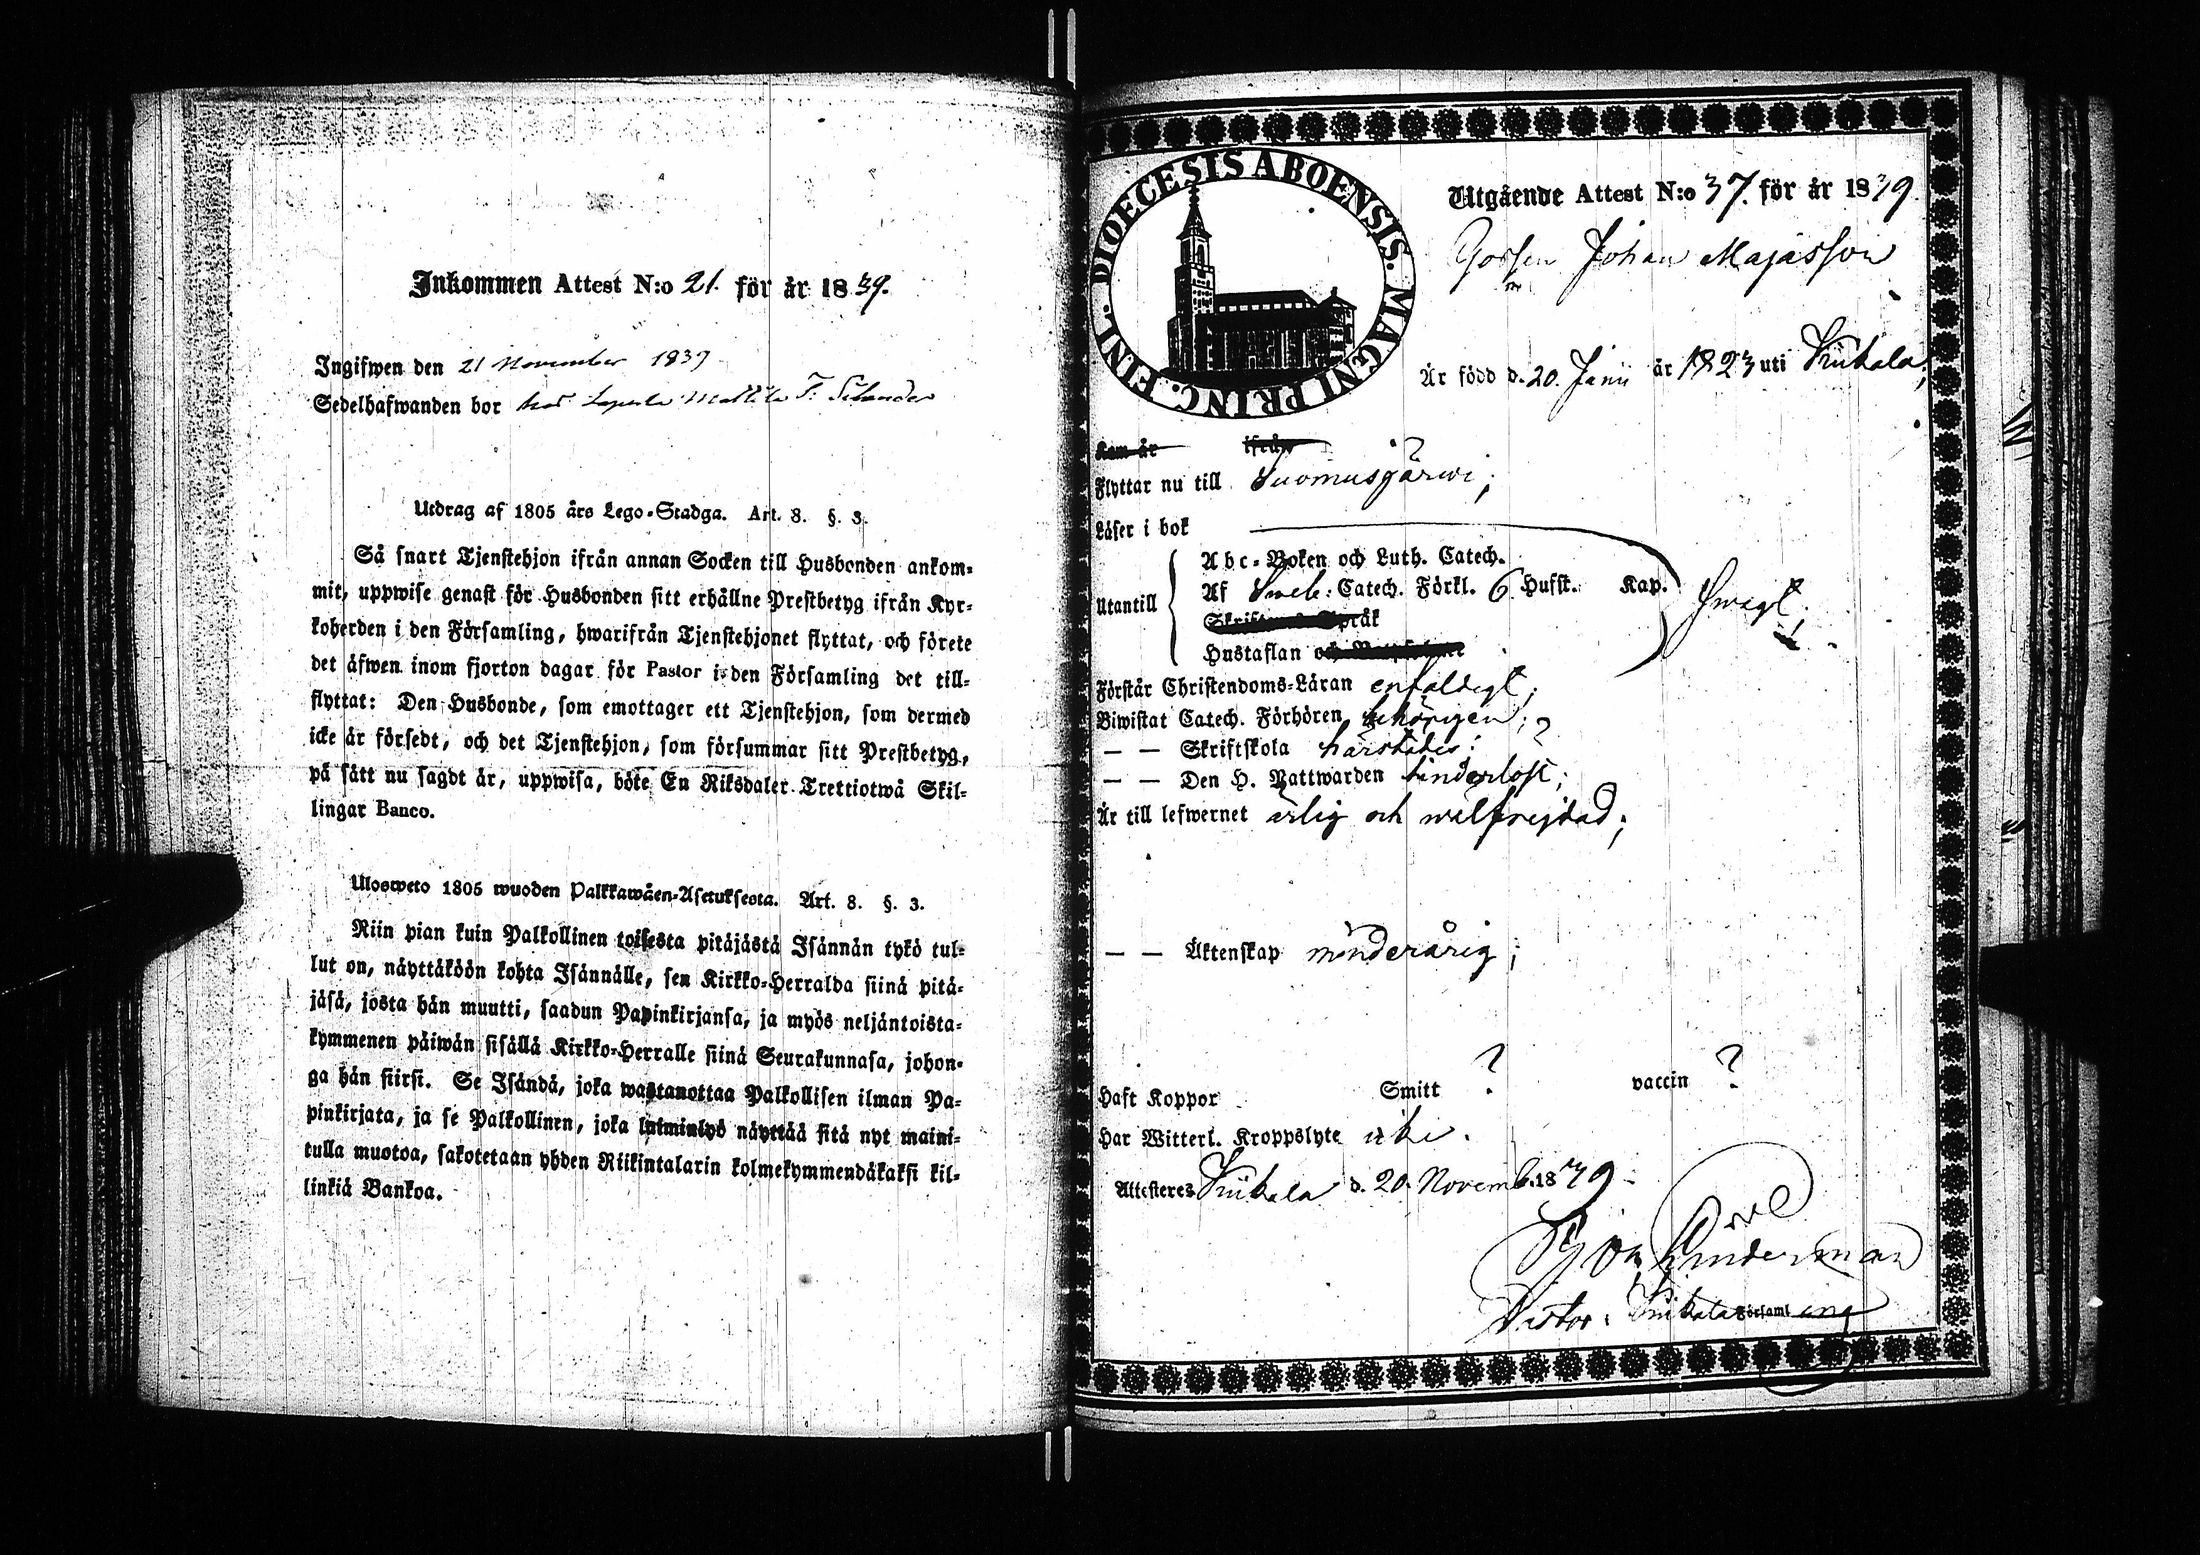 Inkommen Attest N:o 21. för år 1839.
Ingifwen den 21 November 1839
Sedelhafwanden bor hos
Utdrag af 1805 års Lego-Stadga. Art. 8. §. 3.
Så snart Tjenstehjon ifrån annan Socken till Husbonden ankom-
mit, uppwise genast för Husbonden sitt erhållne Prestbetyg ifrån Kyr-
koherden i den Församling, hwarifrån Tjenstehjonet flyttat, och förete
det äfwen inom fjorton dagar för Pastor i den Församling det till-
flyttat: Den Husbonde, som emottager ett Tjenstehjon, som dermed
icke är försedt, och det Tjenstehjon, som försummar sitt Prestbetyg,
på sätt nu sagdt är, uppwisa, böte En Riksdaler Trettiotwå Skil-
lingar Banco.
Ulosweto 1805 wuoden Palkkawäen-Asetuksesta. Art. 8. §. 3.
Niin pian kuin Palkollinen toisesta pitäjästä Isännän tykö tul-
lut on, näyttäköön kohta Isännälle, sen Kirkko-Herralda siinä pitä-
jäsä, josta hän muutti, saadun Papinkirjansa, ja myös neljäntoista-
kymmenen päiwän sisällä Kirkko-Herralle siinä Seurakunnasa, johon-
ga hän siirsi. Se Isändä, joka wastanottaa Palkollisen ilman Pa-
pinkirjata, ja se Palkollinen, joka laiminlyö näyttää sitä nyt maini-
tulla muotoa, sakotetaan yhden Riikintalarin kolmekymmendäkaksi kil-
linkiä Bankoa.
FINL. DIOECESIS ABOENSIS. MAGNI PRINC.
Utgående Attest N:o 37. för år 1839.
Gossen Johan Majasson
Är född d. 20. Junii år 1823 uti Kiikala;
Kom år ifrån ?
Flyttar nu till Suomusjärwi;
Läser i bok
Utantill
Abc-Boken och Luth. Catech.
Af Sweb: Catech. Förkl. 6 Hufst. Kap.
Skriftens Språk
Hustaflan och
swagt.
Förstår Christendoms-Läran enfaldigt;
Biwistat Catech. Förhören behörigen;
— — Skriftskola härstädes; ?
— — Den H. Nattwarden hinderlöst;
Är till lefwernet ärlig och wälfrejdad;
— — Äktenskap minderårig;
Haft Koppor Smitt ? vaccin ?
Har Witterl. Kroppslyte icke.
Attesteres Kiikala d. 20. Novemb. 1839.
Linderman
Pastor i Kiikala Församling